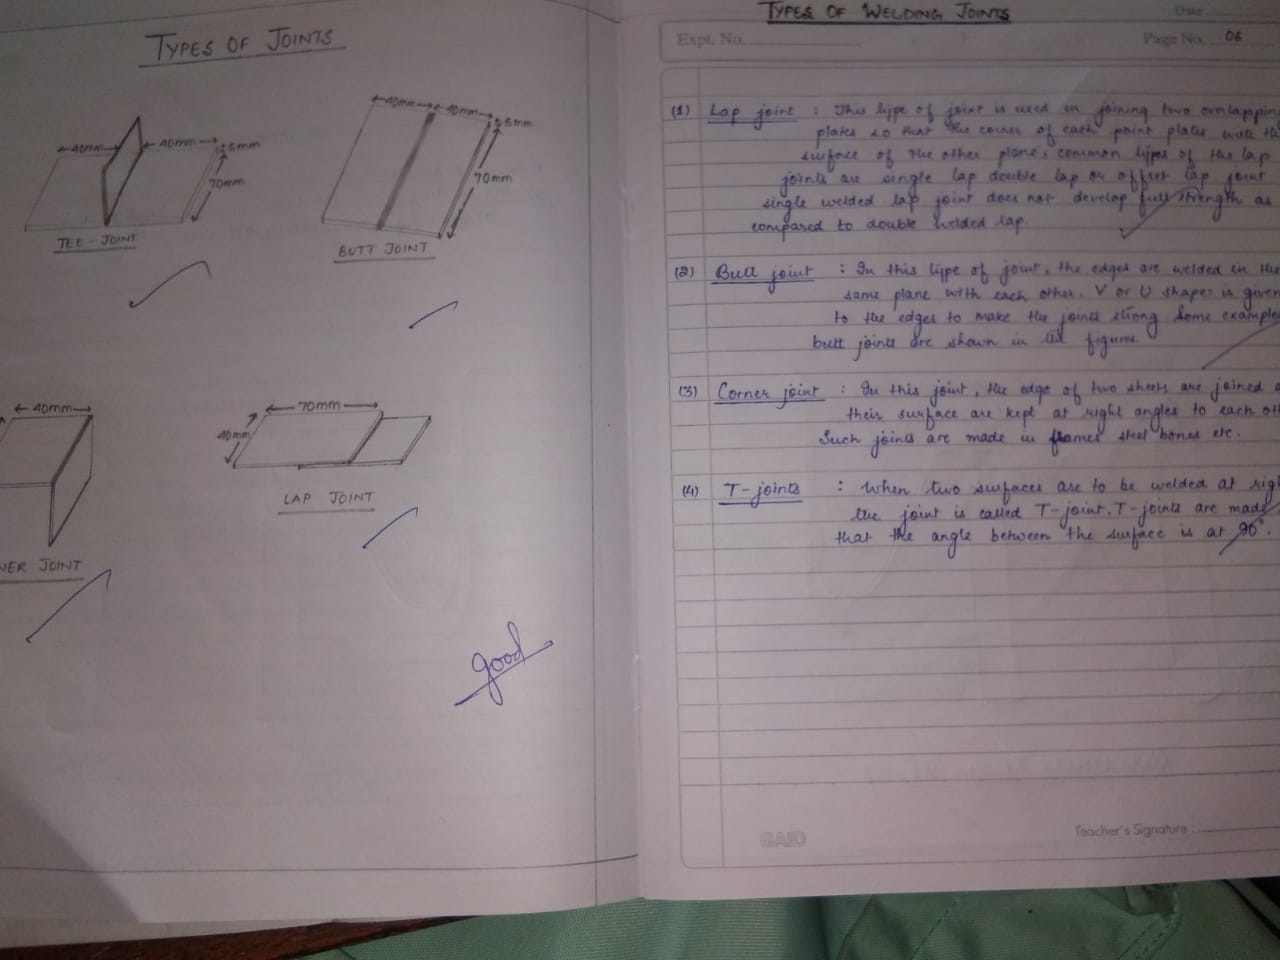 TYPES OF JOINTS
40mm
40mm
5mm
70mm
TEE-JOINT
40mm
40mm
5mm
70mm
BUTT JOINT
40mm
NER JOINT
70mm
40mm
LAP JOINT
good
TYPES OF WELDING JOINTS
Date
Expt. No.
Page No. 06
(1) Lap joint : This type of joint is used in joining two overlapping
plates so that the corner of each point plates with th
surface of the other plane, common types of the lap
joints are single lap double lap or offset lap joint
single welded lap joint does not develop full strength as
compared to double welded lap.
(2) Butt joint : In this type of joint, the edges are welded in the
same plane with each other. V or U shapes is given
to the edges to make the joints strong Some example
butt joints are shown in the figures.
(3) Corner joint : In this joint, the edge of two sheets are joined
their surface are kept at right angles to each oth
Such joints are made in frames steel bones etc.
(4) T-joints : When two surfaces are to be welded at righ
the joint is called T-joint. T-joints are made
that the angle between the surface is at 90°.
BAID
Teacher's Signature :